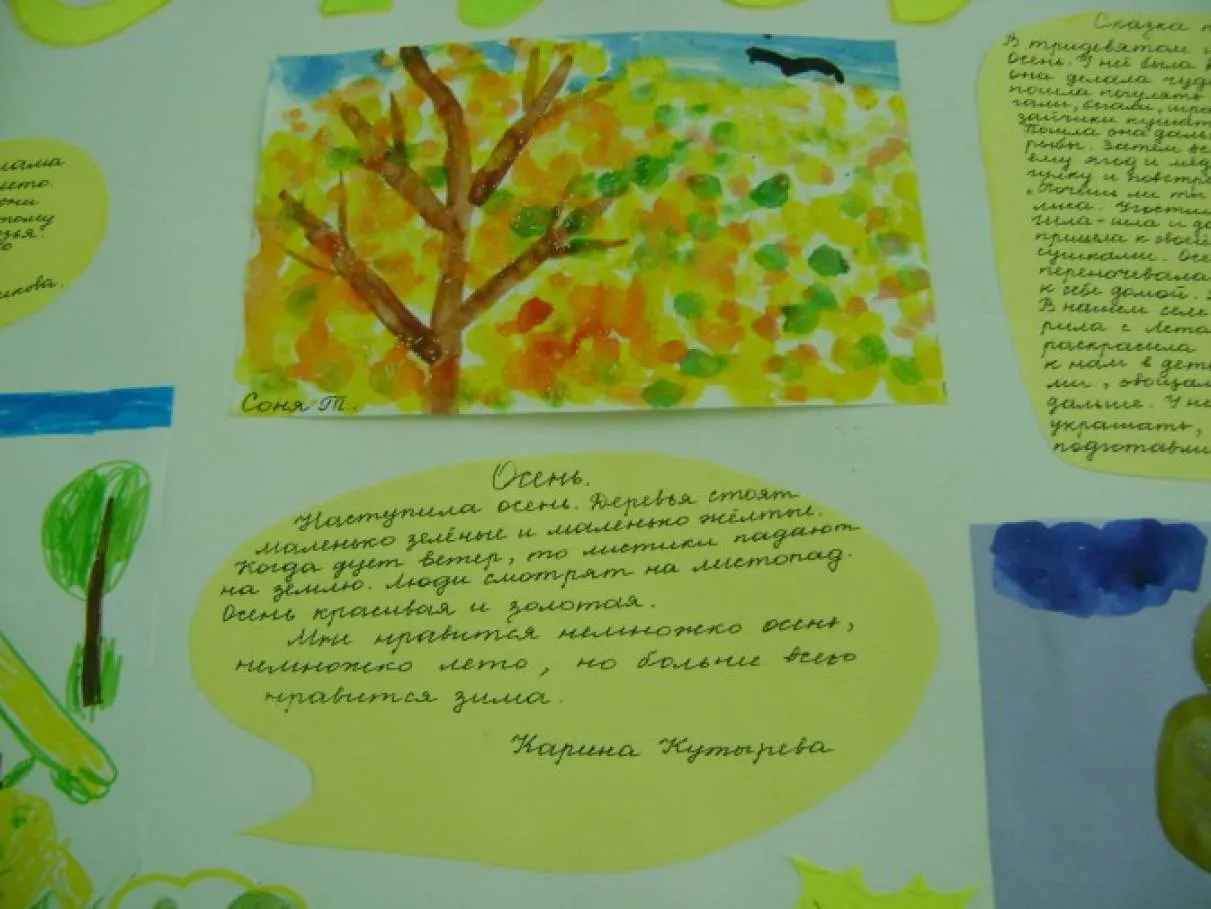 мама
Соня Т.
Осень.
Наступила осень. Деревья стоят
маленько зелёные и маленько жёлтые.
Когда дует ветер, то листики падают
на землю. Люди смотрят на листопад.
Осень красивая и золотая.
Мне нравится немножко осень,
немножко лето, но больше всего
нравится зима.
Карина Кутырева
Сказка
В тридевятом
Осень. У неё была
она делала
пошла погулять
зайчики кушат
Пошла она даль
рыбы. Затем
ему ягод и мёд
гулку и повстре
„Хочешь ли ты
лиса. Угостил
шла-шла и до
пришла к своей
сушками. Осе
переночевала
к себе домой.
В нашем селе
рила с Лета
раскрасила
к нам в дет
ми, овощам
дальше. У не
украшать,
подготавли